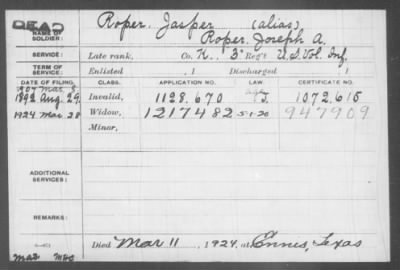 DEAD
Roper, Jasper (alias)
NAME OF SOLDIER: Roper, Joseph A.
SERVICE: Late rank, Co. K, 3" Reg't U.S. Vol. Inf.
TERM OF SERVICE: Enlisted , 1 Discharged , 1
DATE OF FILING. CLASS. APPLICATION NO. LAW CERTIFICATE NO.
1907 Mar. 8
1892 Aug. 29. Invalid, 1128.670 1072.615
1924 Mar. 28 Widow, 1217482 5-1-20 947909
Minor,
ADDITIONAL SERVICES:
REMARKS:
Died Mar 11, 1924, at Ennis, Texas